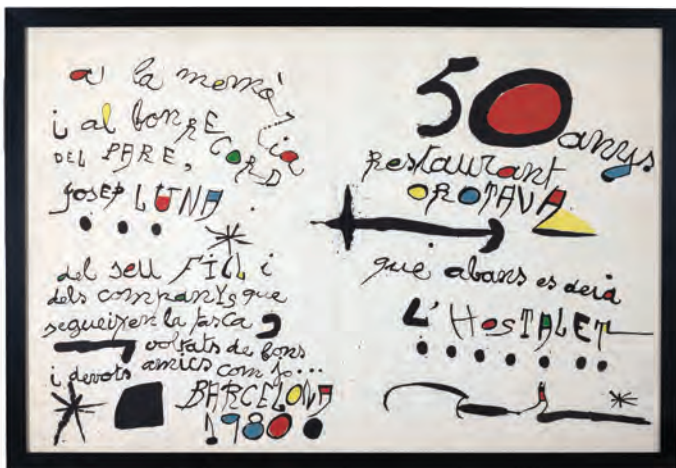 a la memòria
i al bon RECORD
DEL PARE,
JOSEP LUNA.
del seu FILL i
dels companys que
segueixen la tasca
voltats de bons
i devots amics com jo...
BARCELONA
1980.
50 anys
Restaurant
OROTAVA
que abans es deia
L'HOSTALET